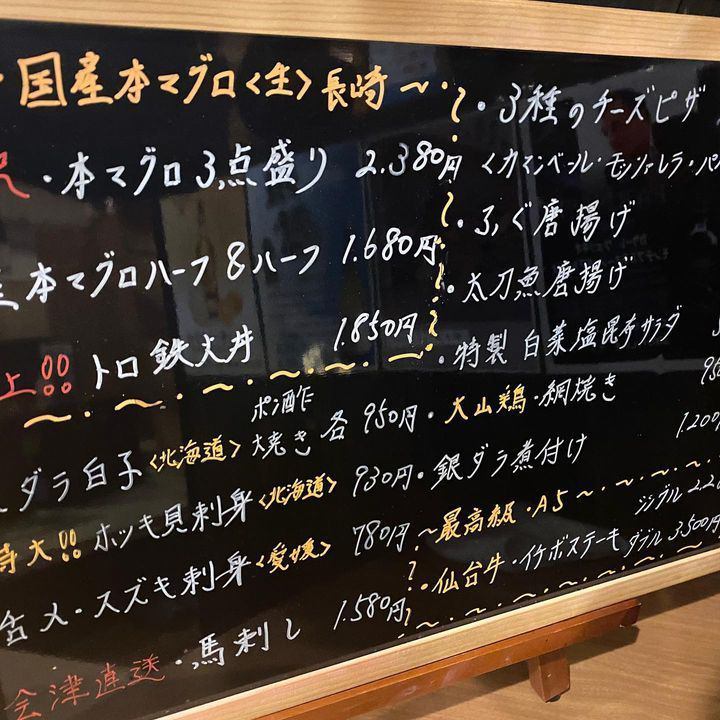 ・国産本マグロ〈生〉長崎〜・
・本マグロ3点盛り 2.380円
本マグロハーフ&ハーフ 1.680円
上!! トロ鉄火丼 1.850円
ダラ白子〈北海道〉ポン酢 焼き 各950円
特大!! ホッキ貝刺身〈北海道〉 930円
メ・スズキ刺身〈愛媛〉 780円
会津直送・馬刺し 1.580円
・3種のチーズピザ
〈カマンベール・モッツァレラ・パ
・ふぐ唐揚げ
・太刀魚唐揚げ
・特製 白菜塩昆布サラダ
・大山鶏・網焼き
・銀ダラ煮付け 1.200
〜最高級・A5〜
・仙台牛・イチボステーキ シングル2.2 ダブル3.500円